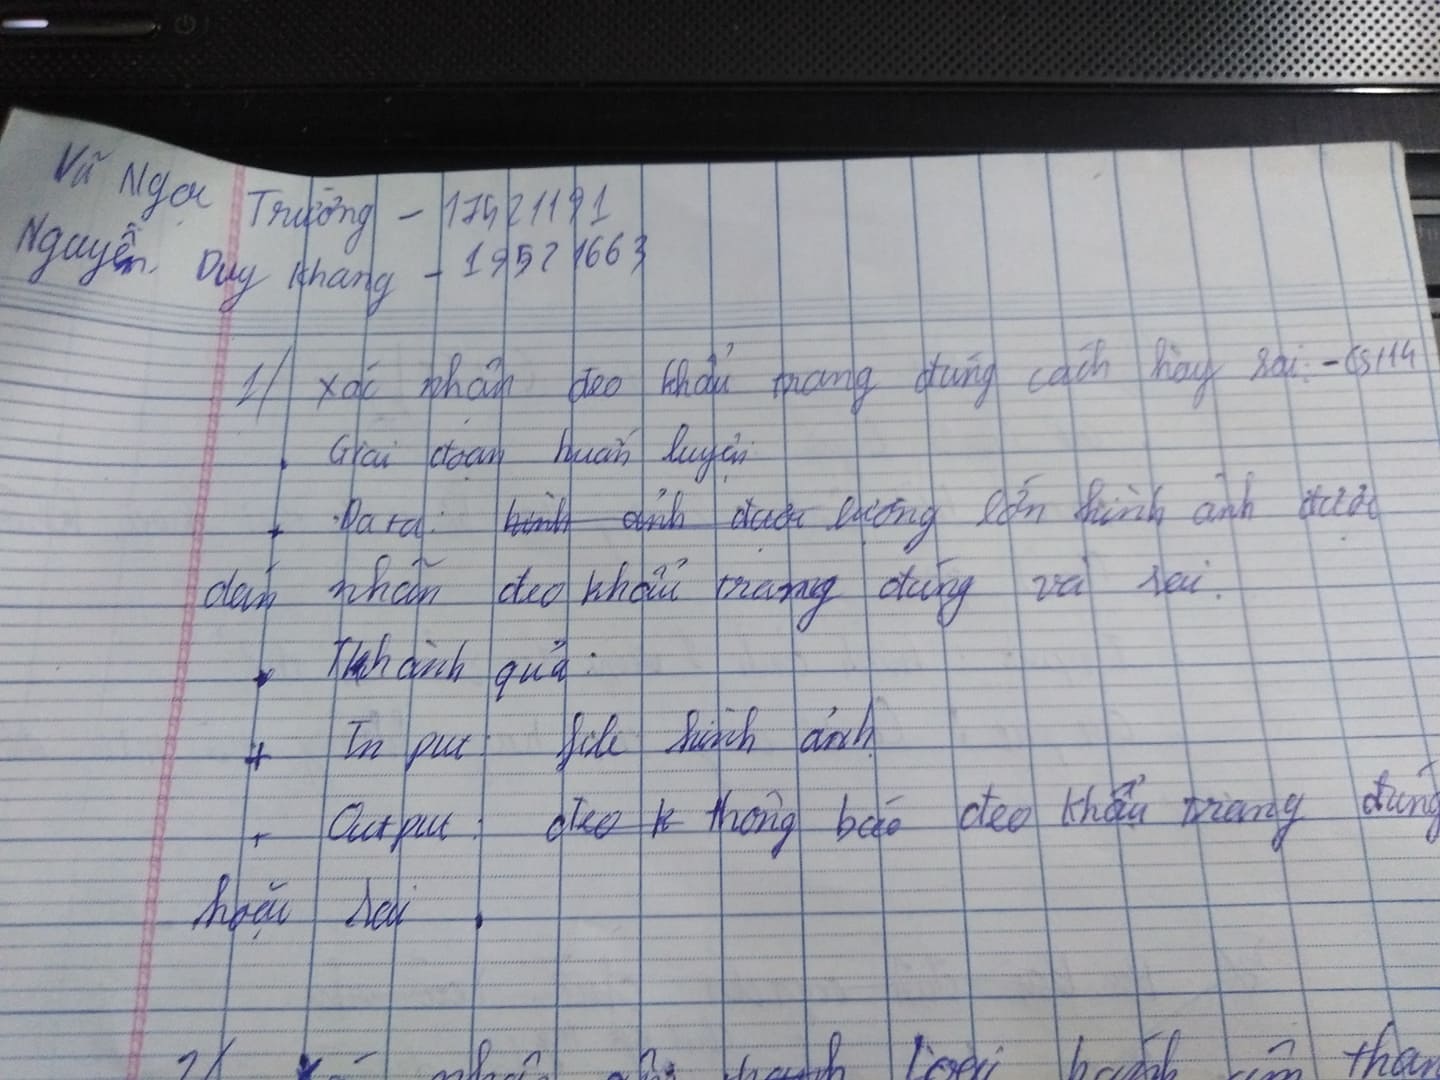 Vũ Ngọc Trường - 17521191
Nguyễn Duy Khang - 19521663
1/ Xác nhận đeo khẩu trang đúng cách hay sai - CS114
. Giai đoạn huấn luyện
+ Data: hình ảnh được lượng lớn hình ảnh được
dán nhãn đeo khẩu trang đúng và sai.
. Thành quả:
+ Input: file hình ảnh
+ Output: đeo k thông báo đeo khẩu trang đúng
hoặc sai.
2/ Xác nhận loại bánh